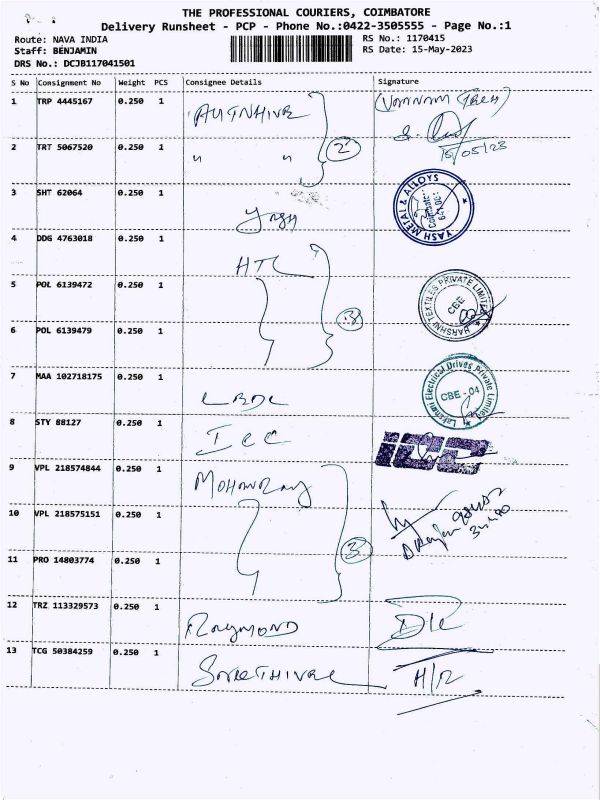 THE PROFESSIONAL COURIERS, COIMBATORE
Delivery Runsheet - PCP - Phone No.:0422-3505555 - Page No.:1
Route: NAVA INDIA
RS No.: 1170415
Staff: BENJAMIN
RS Date: 15-May-2023
DRS No.: DCJB117041501
S No Consignment No Weight PCS Consignee Details Signature
1 TRP 4445167 0.250 1
2 TRT 5067520 0.250 1 " " 2 15/05/23
3 SHT 62064 0.250 1 YASH METAL & ALLOYS
4 DDG 4763018 0.250 1 HTL
5 POL 6139472 0.250 1 HARSHNI TEXTILES PRIVATE LIMITED CBE
6 POL 6139479 0.250 1 3
7 MAA 102718175 0.250 1 Lakshmi Electrical Drives Private Limited CBE - 04
8 STY 88127 0.250 1 ICC
9 VPL 218574844 0.250 1
10 VPL 218575151 0.250 1
11 PRO 14803774 0.250 1 3
12 TRZ 113329573 0.250 1 RAYMOND
13 TCG 50384259 0.250 1 H/R